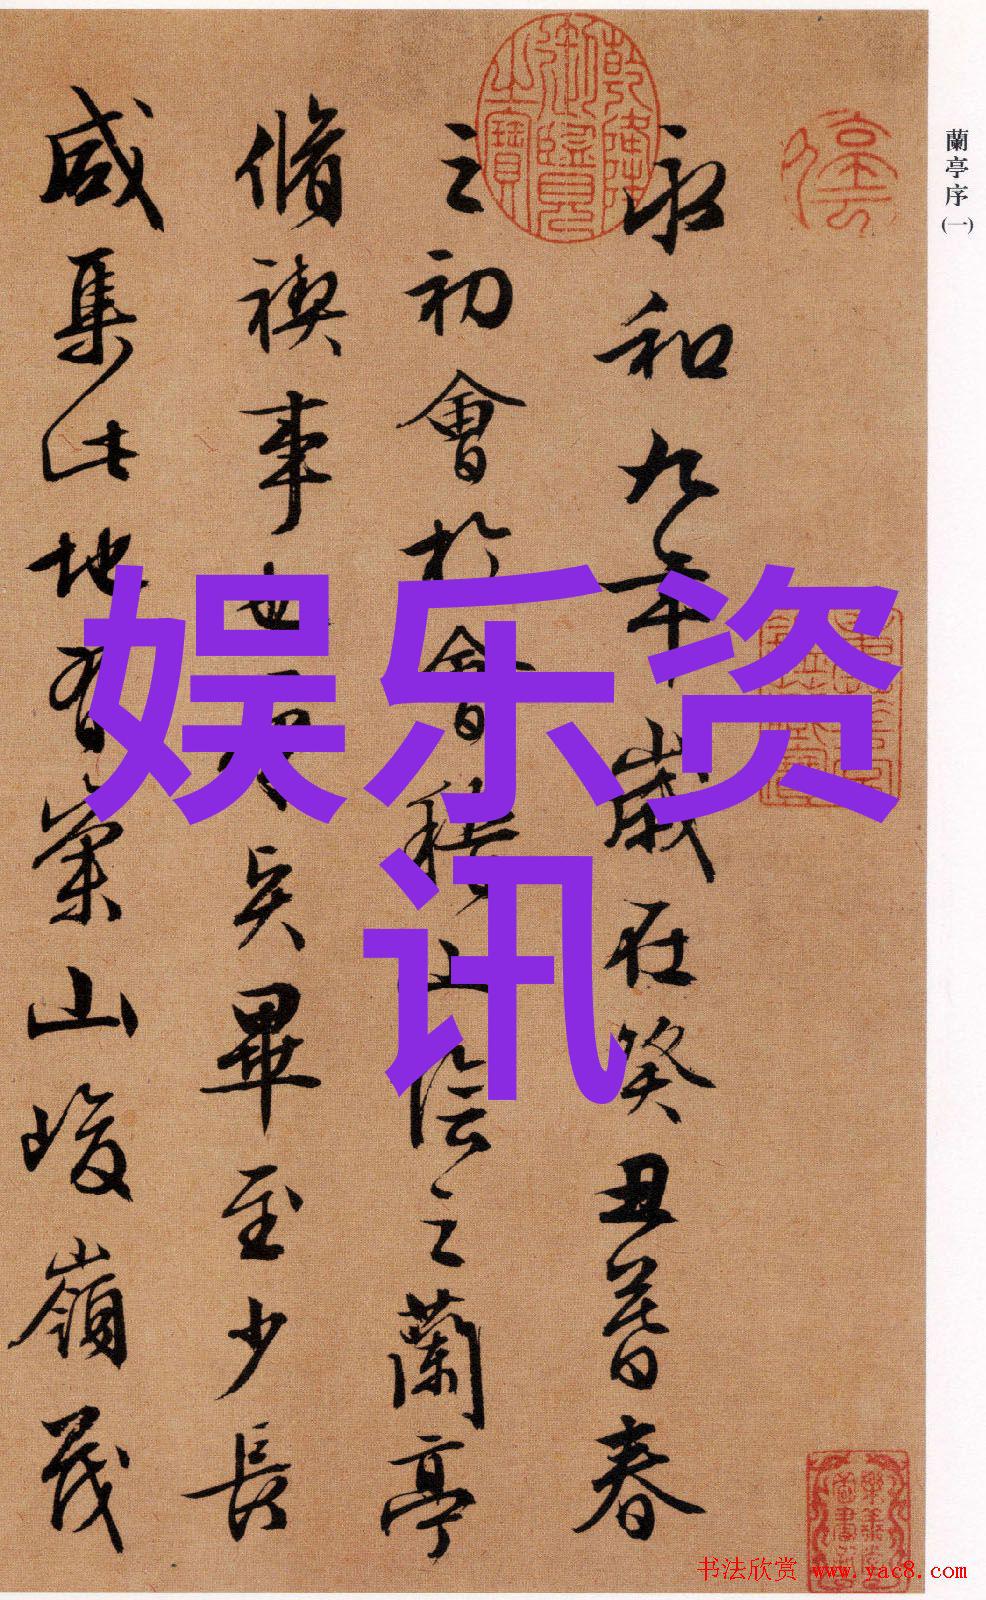 蘭亭序
(一)
永和九年歲在癸丑暮春
之初會於會稽山陰之蘭亭
脩禊事也賢畢至少長
咸集此地有崇山峻嶺茂
乾隆御覽之寶
娱乐资
讯
书法欣赏 www.yac8.com